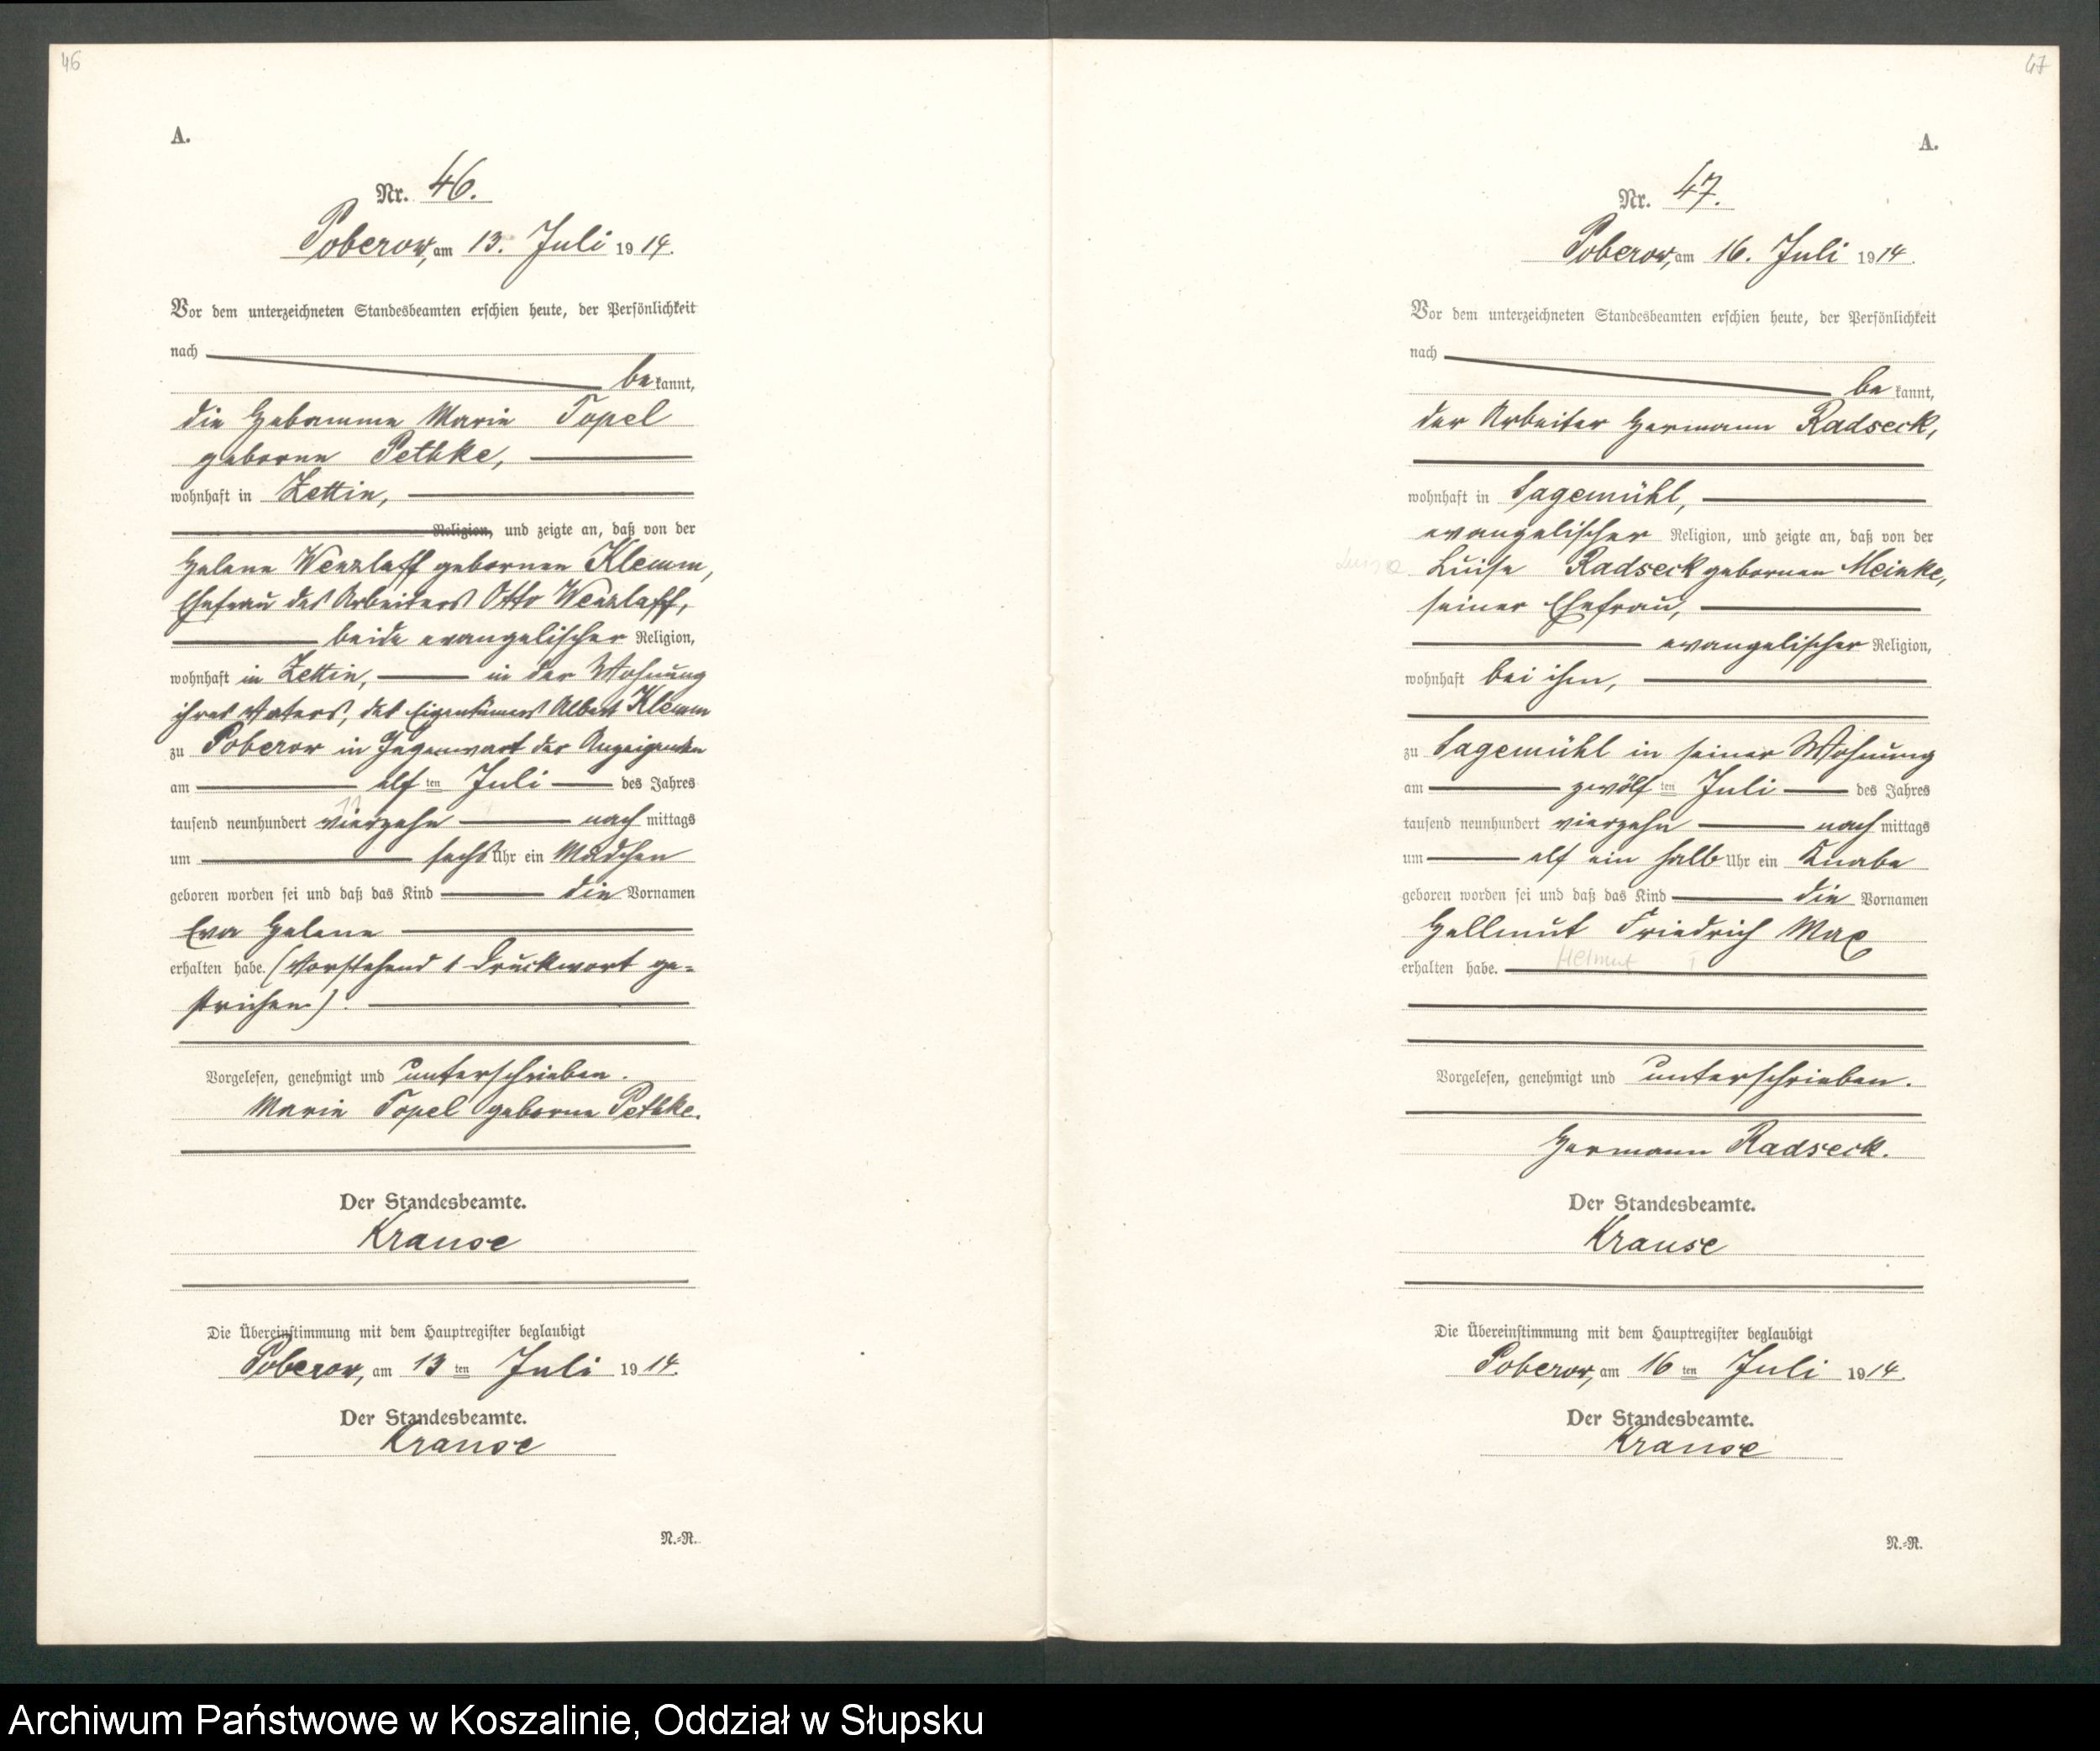 46
A.
Nr. 46.
Poberow, am 13. Juli 1914.
Vor dem unterzeichneten Standesbeamten erschien heute, der Persönlichkeit
nach
bekannt,
die Hebamme Marie Topel
geborne Pethke,
wohnhaft in Zettin,
Religion, und zeigte an, daß von der
Helene Wenzlaff gebornen Klemm,
Ehefrau des Arbeiters Otto Wenzlaff,
beide evangelischer Religion,
wohnhaft in Zettin, in der Wohnung
ihres Vaters, des Eigentümers Albert Klemm
zu Poberow in Gegenwart der Anzeigenden
am elften Juli des Jahres
11
tausend neunhundert vierzehn nachmittags
um sechs Uhr ein Mädchen
geboren worden sei und daß das Kind die Vornamen
Eva Helene
erhalten habe. (Vorstehend 1 Druckwort ge-
strichen).
Vorgelesen, genehmigt und unterschrieben.
Marie Topel geborne Pethke.
Der Standesbeamte.
Krause
Die Übereinstimmung mit dem Hauptregister beglaubigt
Poberow, am 13ten Juli 1914.
Der Standesbeamte.
Krause
N.-R.
47
A.
Nr. 47.
Poberow, am 16. Juli 1914.
Vor dem unterzeichneten Standesbeamten erschien heute, der Persönlichkeit
nach
bekannt,
der Arbeiter Hermann Radseck,
wohnhaft in Sagemühl,
evangelischer Religion, und zeigte an, daß von der
Luise Luise Radseck gebornen Meinke,
seiner Ehefrau,
evangelischer Religion,
wohnhaft bei ihm,
zu Sagemühl in seiner Wohnung
am zwölften Juli des Jahres
tausend neunhundert vierzehn nachmittags
um elf ein halb Uhr ein Knabe
geboren worden sei und daß das Kind die Vornamen
Hellmut Friedrich Max
Helmut
erhalten habe.
Vorgelesen, genehmigt und unterschrieben.
Hermann Radseck.
Der Standesbeamte.
Krause
Die Übereinstimmung mit dem Hauptregister beglaubigt
Poberow, am 16ten Juli 1914.
Der Standesbeamte.
Krause
N.-R.
Archiwum Państwowe w Koszalinie, Oddział w Słupsku